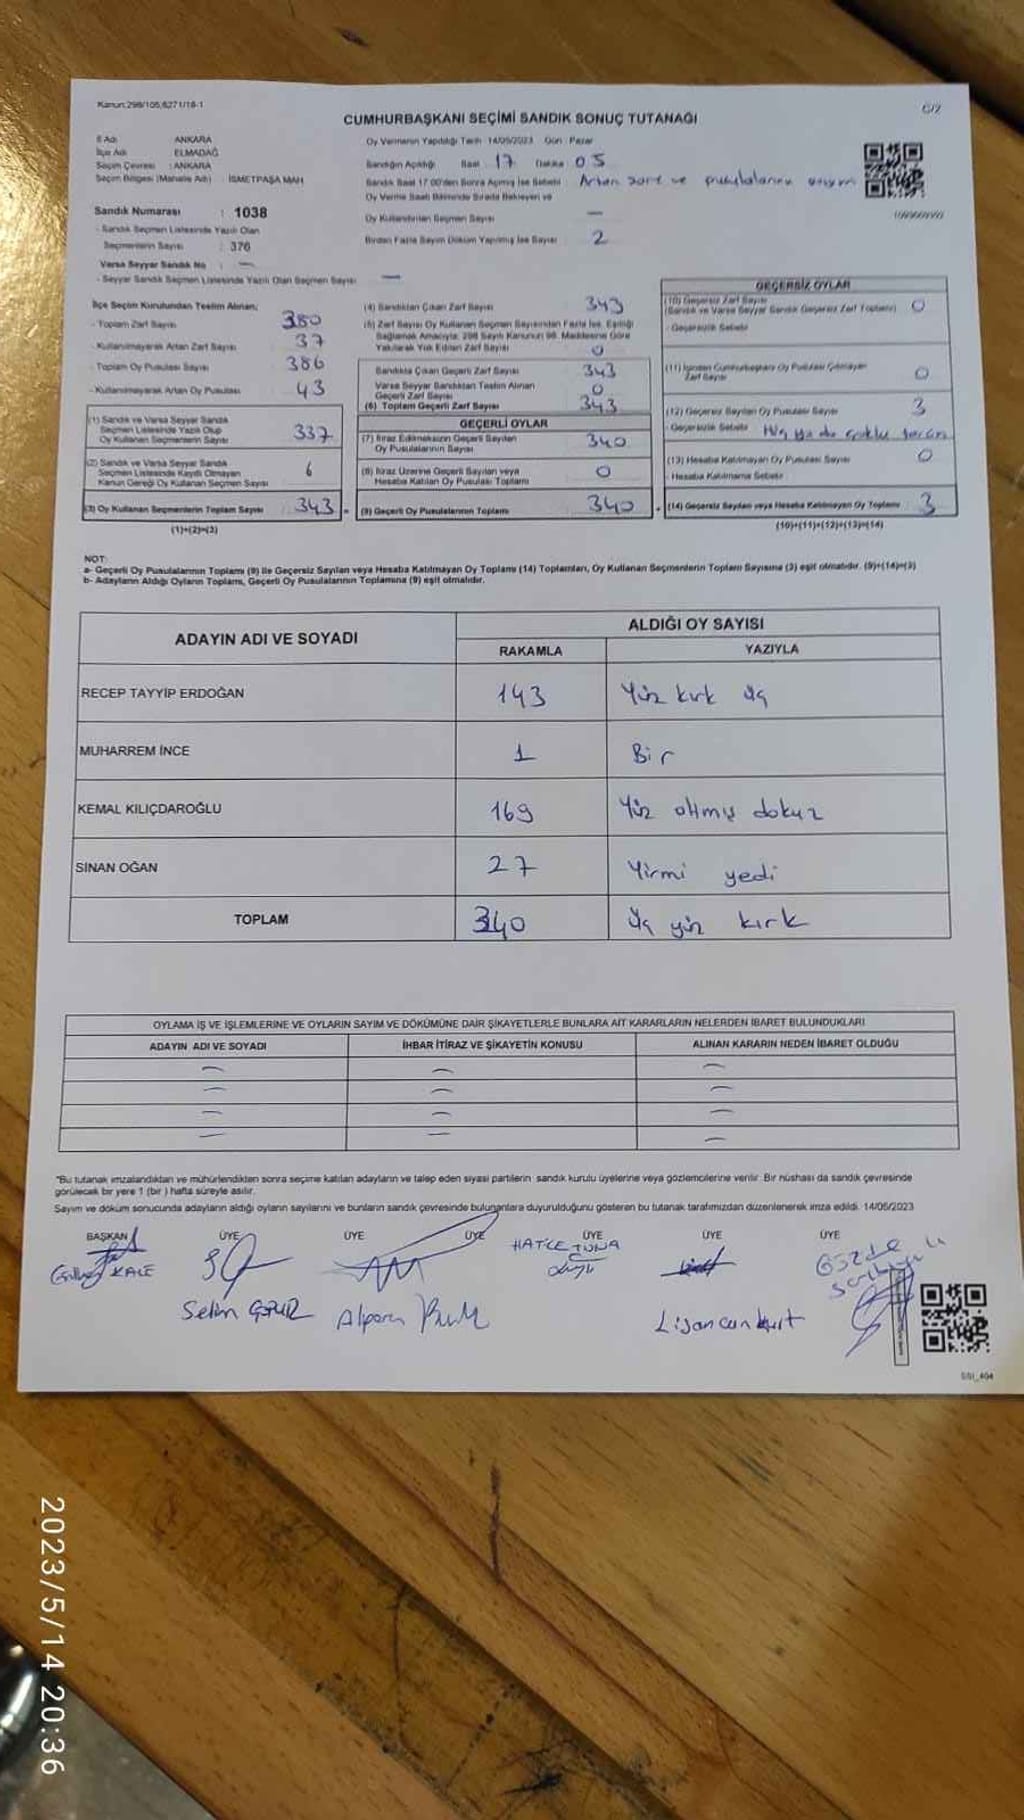 Kanun:298/105,6271/18-1
C/2
CUMHURBAŞKANI SEÇİMİ SANDIK SONUÇ TUTANAĞI
İl Adı ANKARA
İlçe Adı ELMADAĞ
Seçim Çevresi : ANKARA
Seçim Bölgesi (Mahalle Adı) : İSMETPAŞA MAH
Sandık Numarası : 1038
- Sandık Seçmen Listesinde Yazılı Olan
Seçmenlerin Sayısı : 376
Varsa Seyyar Sandık No : —
- Seyyar Sandık Seçmen Listesinde Yazılı Olan Seçmen Sayısı —
Oy Vermenin Yapıldığı Tarih 14/05/2023 Gün : Pazar
Sandığın Açıldığı Saat : 17 Dakika 05
Sandık Saat 17:00'den Sonra Açılmış İse Sebebi Artan zarf ve pusulaların sayımı
Oy Verme Saati Bitiminde Sırada Bekleyen ve
Oy Kullandırılan Seçmen Sayısı —
Birden Fazla Sayım Döküm Yapılmış İse Sayısı 2
İlçe Seçim Kurulundan Teslim Alınan;
- Toplam Zarf Sayısı 380
- Kullanılmayarak Artan Zarf Sayısı 37
- Toplam Oy Pusulası Sayısı 386
- Kullanılmayarak Artan Oy Pusulası 43
(1) Sandık ve Varsa Seyyar Sandık
Seçmen Listesinde Yazılı Olup
Oy Kullanan Seçmenlerin Sayısı 337
(2) Sandık ve Varsa Seyyar Sandık
Seçmen Listesinde Kayıtlı Olmayan
Kanun Gereği Oy Kullanan Seçmen Sayısı 6
(3) Oy Kullanan Seçmenlerin Toplam Sayısı 343
(1)+(2)=(3)
(4) Sandıktan Çıkan Zarf Sayısı 343
(5) Zarf Sayısı Oy Kullanan Seçmen Sayısından Fazla İse, Eşitliği
Sağlamak Amacıyla; 298 Sayılı Kanunun 98. Maddesine Göre
Yakılarak Yok Edilen Zarf Sayısı 0
Sandıkta Çıkan Geçerli Zarf Sayısı 343
Varsa Seyyar Sandıktan Teslim Alınan
Geçerli Zarf Sayısı 0
(6) Toplam Geçerli Zarf Sayısı 343
GEÇERLİ OYLAR
(7) İtiraz Edilmeksizin Geçerli Sayılan
Oy Pusulalarının Sayısı 340
(8) İtiraz Üzerine Geçerli Sayılan veya
Hesaba Katılan Oy Pusulası Toplamı 0
(9) Geçerli Oy Pusulalarının Toplamı 340
GEÇERSİZ OYLAR
(10) Geçersiz Zarf Sayısı
(Sandık ve Varsa Seyyar Sandık Geçersiz Zarf Toplamı) 0
- Geçersizlik Sebebi
(11) İçinden Cumhurbaşkanı Oy Pusulası Çıkmayan
Zarf Sayısı 0
(12) Geçersiz Sayılan Oy Pusulası Sayısı 3
- Geçersizlik Sebebi Hiç ya da çoklu
(13) Hesaba Katılmayan Oy Pusulası Sayısı 0
- Hesaba Katılmama Sebebi
(14) Geçersiz Sayılan veya Hesaba Katılmayan Oy Toplamı 3
(10)+(11)+(12)+(13)=(14)
NOT:
a- Geçerli Oy Pusulalarının Toplamı (9) ile Geçersiz Sayılan veya Hesaba Katılmayan Oy Toplamı (14) Toplamları, Oy Kullanan Seçmenlerin Toplam Sayısına (3) eşit olmalıdır. (9)+(14)=(3)
b- Adayların Aldığı Oyların Toplamı, Geçerli Oy Pusulalarının Toplamına (9) eşit olmalıdır.
ADAYIN ADI VE SOYADI ALDIĞI OY SAYISI
RAKAMLA YAZIYLA
RECEP TAYYİP ERDOĞAN 143 Yüz kırk üç
MUHARREM İNCE 1 Bir
KEMAL KILIÇDAROĞLU 169 Yüz altmış dokuz
SİNAN OĞAN 27 Yirmi yedi
TOPLAM 340 Üç yüz kırk
OYLAMA İŞ VE İŞLEMLERİNE VE OYLARIN SAYIM VE DÖKÜMÜNE DAİR ŞİKAYETLERLE BUNLARA AİT KARARLARIN NELERDEN İBARET BULUNDUKLARI
ADAYIN ADI VE SOYADI İHBAR İTİRAZ VE ŞİKAYETİN KONUSU ALINAN KARARIN NEDEN İBARET OLDUĞU
— — —
— — —
— — —
— — —
*Bu tutanak imzalandıktan ve mühürlendikten sonra seçime katılan adayların ve talep eden siyasi partilerin sandık kurulu üyelerine veya gözlemcilerine verilir. Bir nüshası da sandık çevresinde
görülecek bir yere 1 (bir ) hafta süreyle asılır.
Sayım ve döküm sonucunda adayların aldığı oyların sayılarını ve bunların sandık çevresinde bulunanlara duyurulduğunu gösteren bu tutanak tarafımızdan düzenlenerek imza edildi. 14/05/2023
BAŞKAN ÜYE ÜYE ÜYE ÜYE ÜYE ÜYE
KALE
HATİCE TUNA
Gözde
Selim
Alperen
SSI_404
2023/5/14 20:36